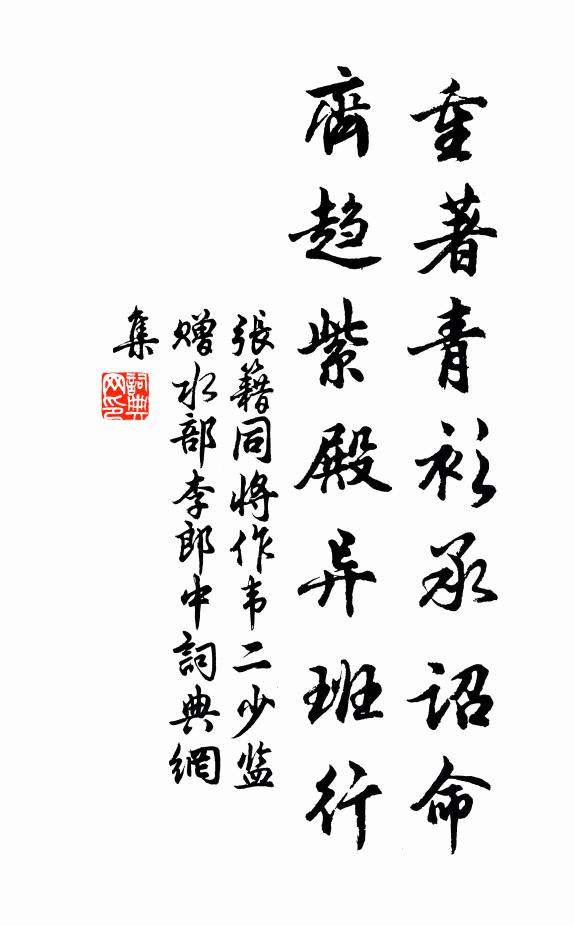 重著青衫承詔命
齊趨紫殿异班行
張籍同將作韦二少监
赠水部李郎中詞典網
集
詞典
网印